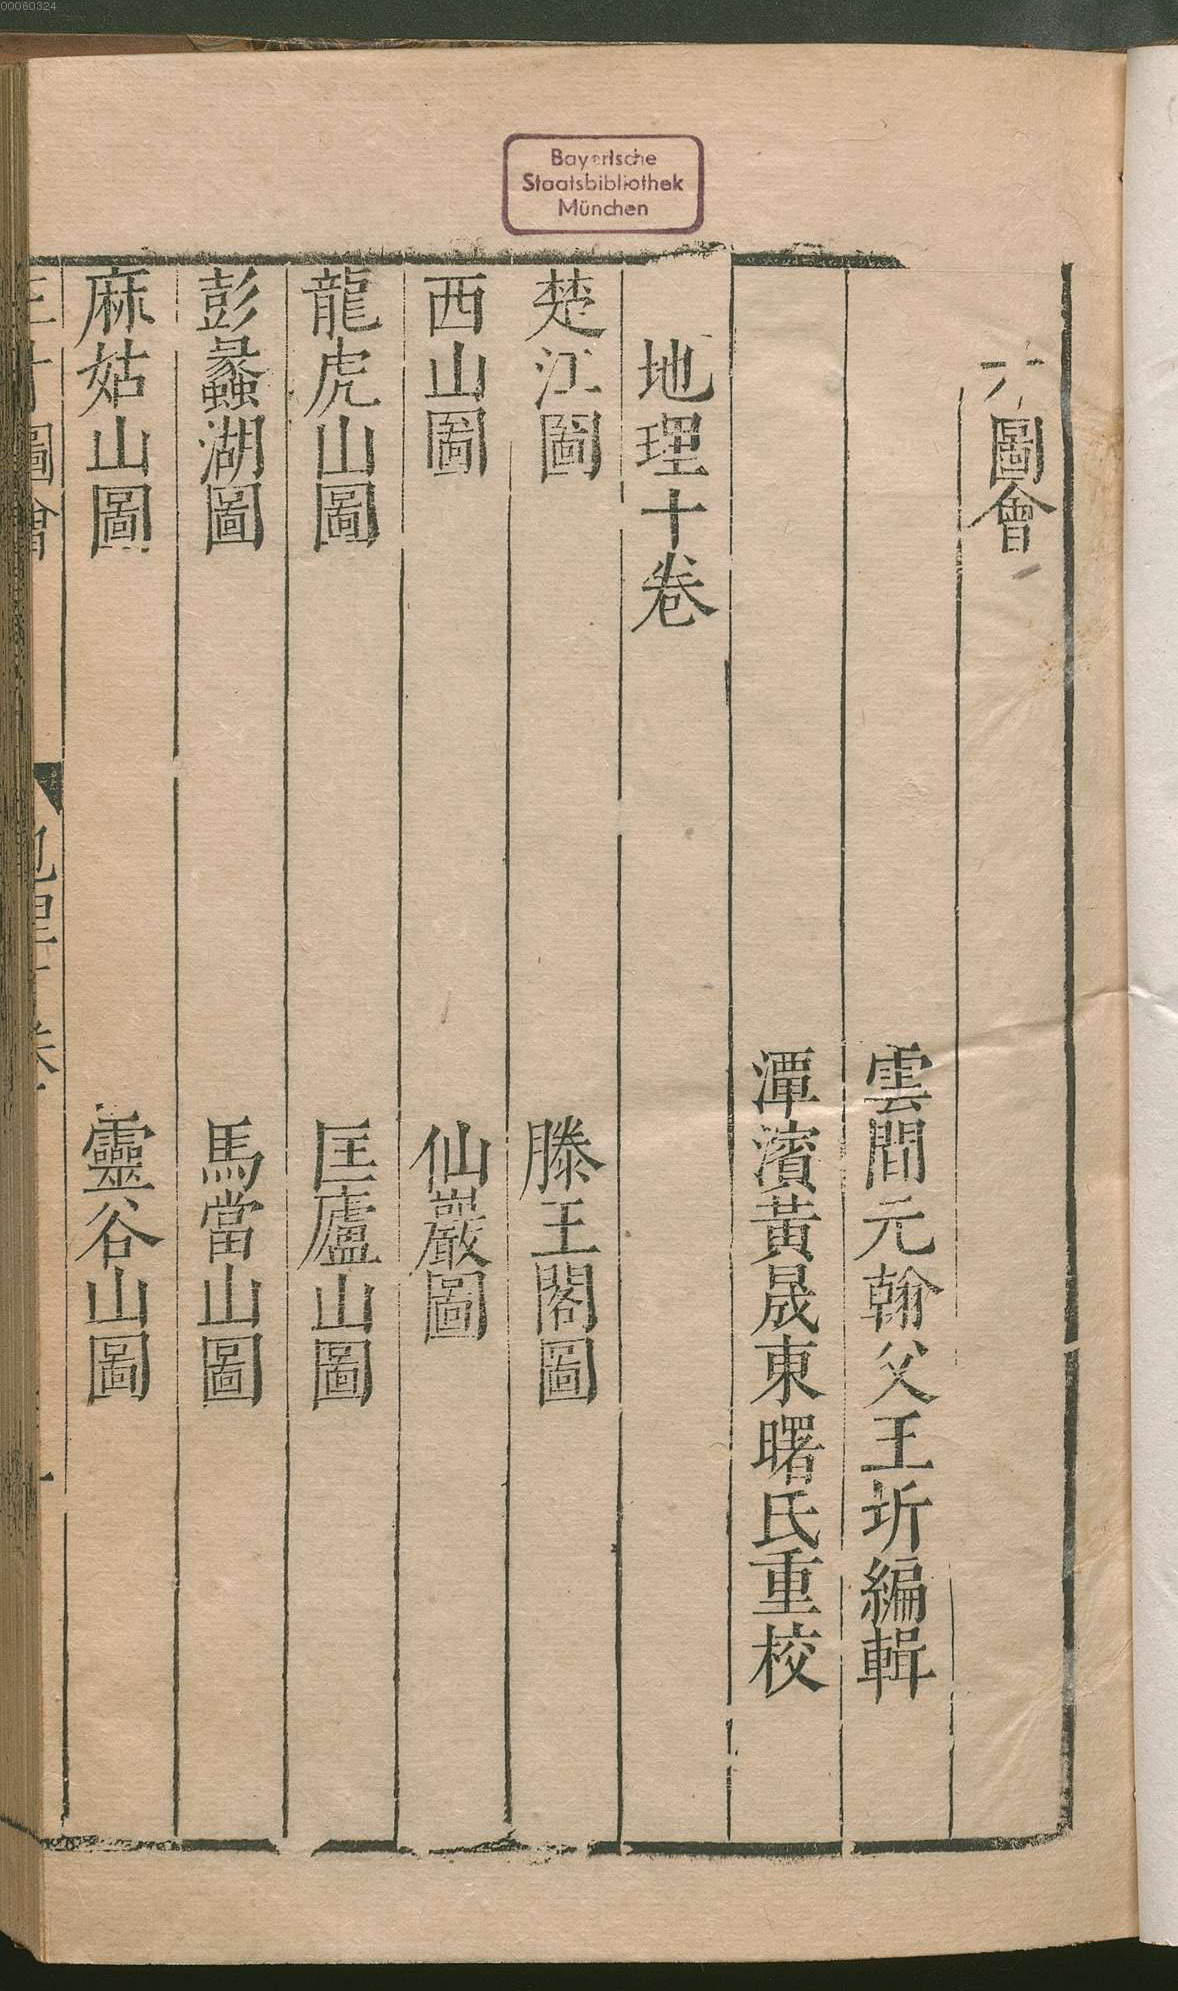 00060324
Bayerische
Staatsbibliothek
München
圖會
雲間元翰父王圻編輯
潭濱黃晟東曙氏重校
地理十卷
楚江圖
滕王閣圖
西山圖
仙巖圖
龍虎山圖
匡廬山圖
彭蠡湖圖
馬當山圖
麻姑山圖
靈谷山圖